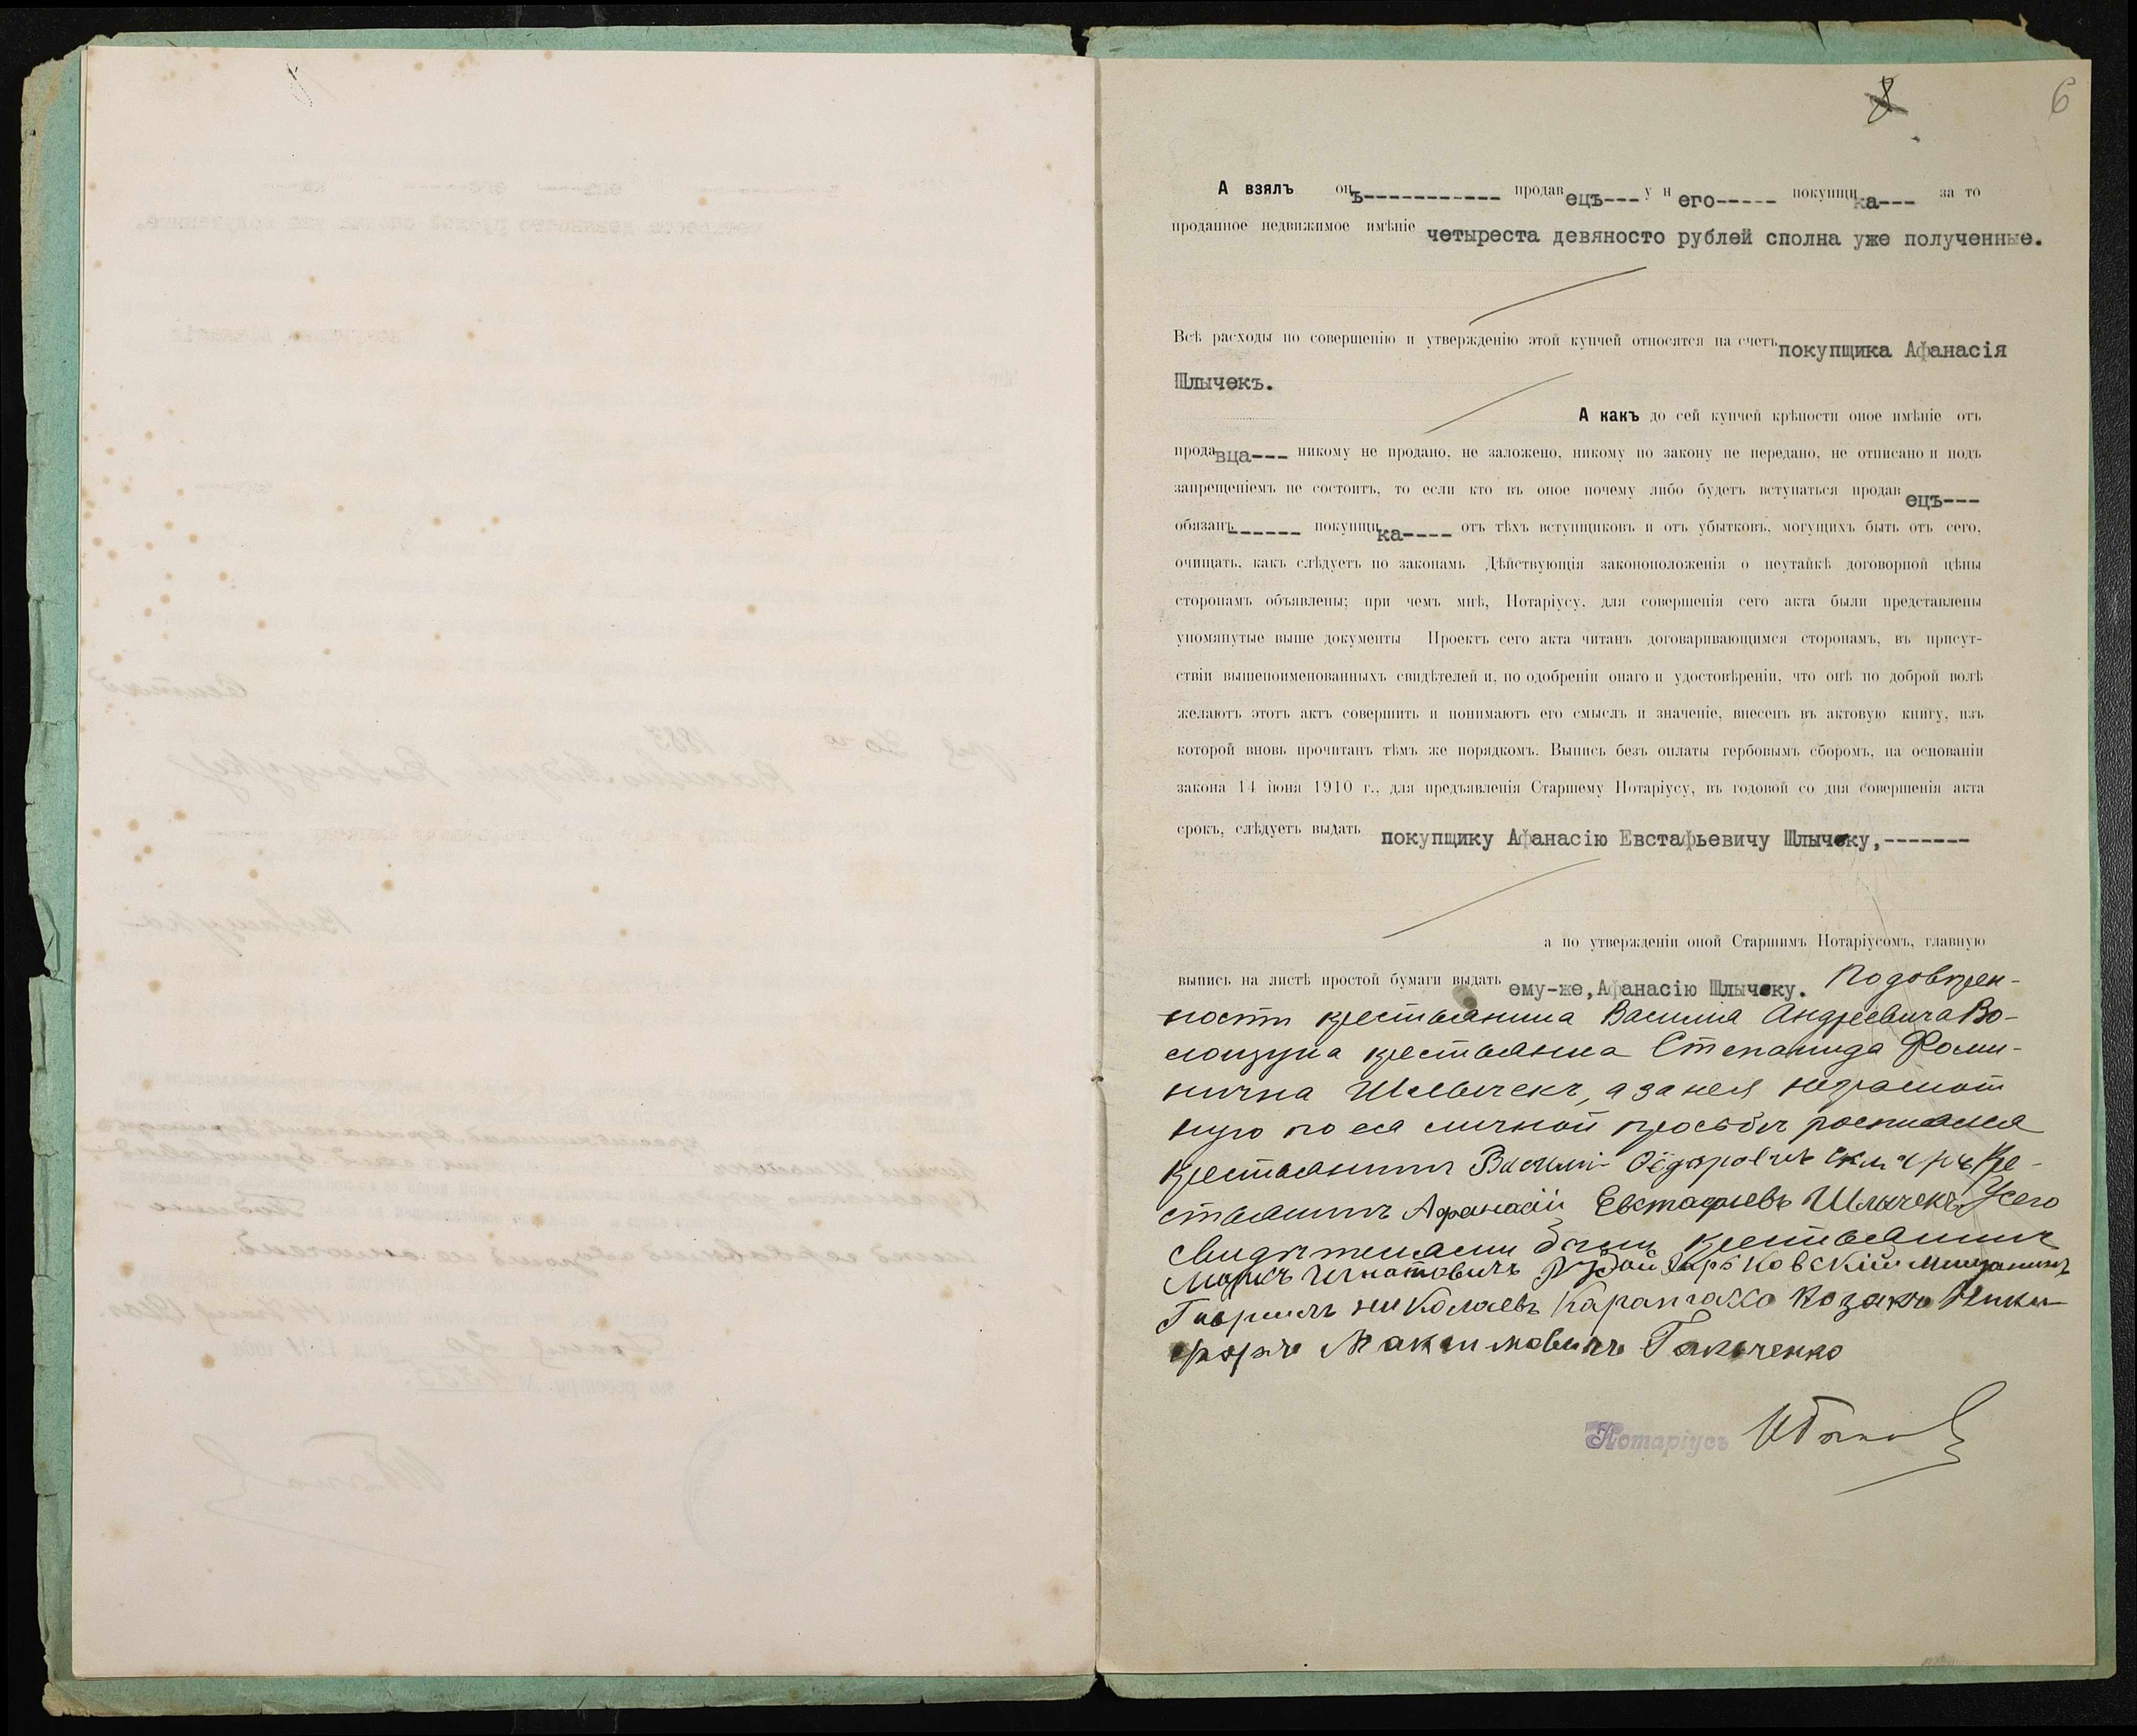 8 6
А взялъ онъ----------- продавецъ--- у него----- покупщика--- за то
проданное недвижимое имѣніе четыреста девяносто рублей сполна уже полученные.
Всѣ расходы по совершенію и утвержденію этой купчей относятся на счетъ покупщика Афанасія
Шлычекъ.
А какъ до сей купчей крѣпости оное имѣніе отъ
продавца--- никому не продано, не заложено, никому по закону не передано, не отписано и подъ
запрещеніемъ не состоитъ, то если кто въ оное почему либо будетъ вступаться продавецъ---
обязанъ------ покупщика---- отъ тѣхъ вступщиковъ и отъ убытковъ, могущихъ быть отъ сего,
очищать, какъ слѣдуетъ по законамъ Дѣйствующія законоположенія о неутайкѣ договорной цѣны
сторонамъ объявлены; при чемъ мнѣ, Нотаріусу, для совершенія сего акта были представлены
упомянутые выше документы Проектъ сего акта читанъ договаривающимся сторонамъ, въ присут-
ствіи вышепоименованныхъ свидѣтелей и, по одобреніи онаго и удостовѣреніи, что онѣ по доброй волѣ
желаютъ этотъ актъ совершить и понимаютъ его смыслъ и значеніе, внесенъ въ актовую книгу, изъ
которой вновь прочитанъ тѣмъ же порядкомъ. Выпись безъ оплаты гербовымъ сборомъ, на основаніи
закона 14 іюня 1910 г., для предъявленія Старшему Нотаріусу, въ годовой со дня совершенія акта
срокъ, слѣдуетъ выдать покупщику Афанасію Евстафьевичу Шлычеку,-------
а по утвержденіи оной Старшимъ Нотаріусомъ, главную
выпись на листѣ простой бумаги выдать ему-же, Афанасію Шлычеку. По довѣрен-
ности крестьянина Василія Андреевича Во-
лощука крестьянка Степанида Фоми-
нична Шлычекъ, а за нея неграмот
ную по ея личной просьбѣ росписался
крестьянинъ Василій Ѳёдоровичъ кре-
стьянинъ Афанасій Евстафіевъ Шлычекъ. У сего
свидѣтелями были крестьянинъ
Маркъ Игнатовичъ Харьковскій мещанинъ
Гавріилъ Николаевъ козакъ Ники-
форъ Максимовичъ
Нотаріусъ